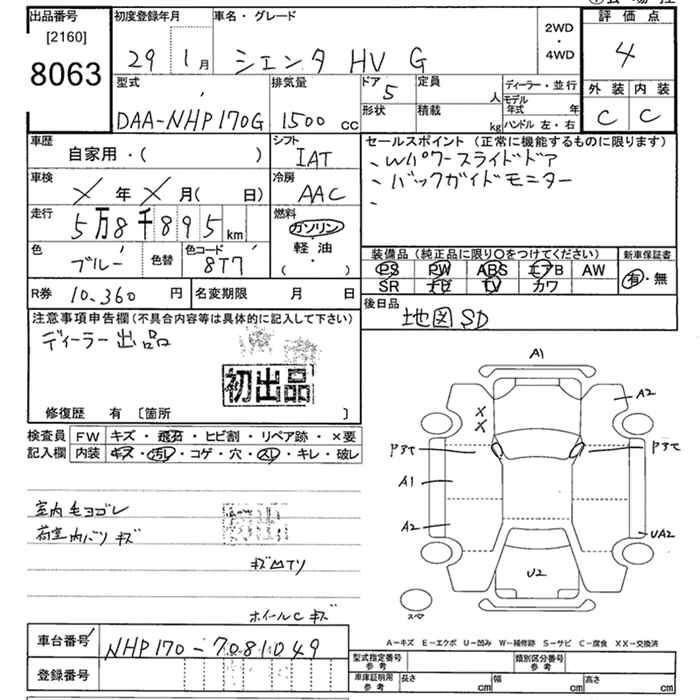 出品番号
[2160]
8063
初度登録年月
29年 1月
車名・グレード
シエンタ HV G
2WD
・
4WD
評価点
4
型式
DAA-NHP170G
排気量
1500 cc
ドア
5
形状
定員
人
積載
kg
ディーラー・並行
モデル年式 年
ハンドル 左・右
外装 内装
C C
車歴
自家用・( )
シフト
IAT
セールスポイント (正常に機能するものに限ります)
、Wパワースライドドア
、バックガイドモニター
、
車検
X 年 X 月( 日)
冷房
AAC
走行
5万8千895km
燃料
ガソリン
軽・油
( ・ )
色
ブルー
色替
色コード
8T7
装備品 (純正品に限り○をつけてください)
PS PW ABS エアB AW
SR ナビ TV カワ
新車保証書
有・無
R券 10,360 円
名変期限 月 日
後日品
地図SD
注意事項申告欄 (不具合内容等は具体的に記入して下さい)
ディーラー出品
初出品
修復歴 有 〔箇所 〕
検査員記入欄
FW キズ・飛石・ヒビ割・リペア跡・×要
内装 キズ・汚レ・コゲ・穴・スレ・キレ・破レ
室内毛ヨゴレ
荷室内バリキズ
キズ凹アリ
ホイールCキズ
A1
A2
X
X
A1
A2
UA2
U2
スペア
A-キズ E-エクボ U-凹み W-補修跡 S-サビ C-腐食 XX-交換済
車台番号 NHP170-7081049
登録番号
型式指定番号
参考
類別区分番号
参考
車庫証明用
参考
長さ cm 幅 cm 高さ cm